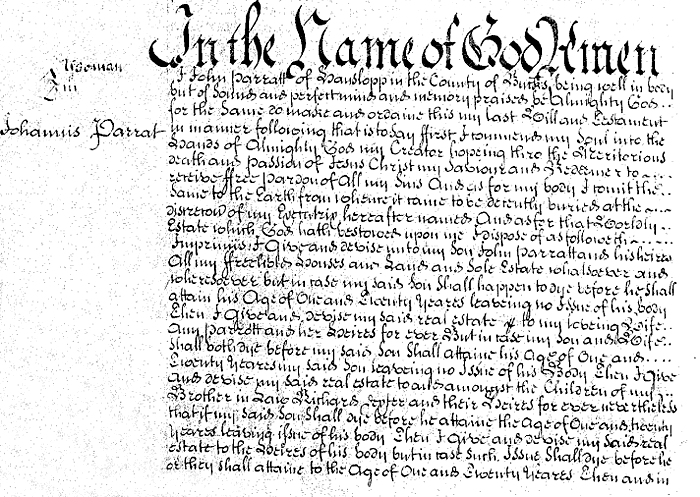 In the Name of God Amen
Johannis Parrat
I John Parratt of Hanslopp in the County of Bucks being well in body
but of sound and perfect mind and memory praised be Almighty God
for the same do make and ordaine this my last Will and Testament
in manner following that is to say ffirst I commend my Soul into the
Hands of Almighty God my Creator hopeing thro the Meritorious
death and passion of Jesus Christ my Saviour and Redeemer to
receive ffree Pardon of All my Sins And as for my body I comit the
same to the Earth from whence it came to be decently buried at the
discretion of my Executrix hereafter named And as for that Worldly
Estate which God hath bestowed upon me I dispose of as followeth
Imprimis I Give and devise unto my Son John Parratt and his heires
All my ffreehold Houses and Land and Sole Estate whatsoever and
wheresoever but in case my said Son shall happen to dye before he shall
attain his Age of One and Twenty Yeares leaveing no Issue of his body
Then I Give and devise my said real estate to my loveing Wife
Ann Parrott and her Heires for ever But in case my Son and Wife
shall both dye before my said Son shall attaine his Age of One and
Twenty Yeares my said Son leaveing no Issue of his Body Then I Give
And devise my said real estate to and amongst the Children of my
Brother in Law Richard and their Heires for ever nevertheless
that if my said Son shall dye before he attaine the Age of One and twenty
Yeares leaving issue of his body Then I Give and devise my said real
estate to the Heires of his body but in case such Issue shall dye before he
or they shall attaine to the Age of One and Twenty Yeares Then and in